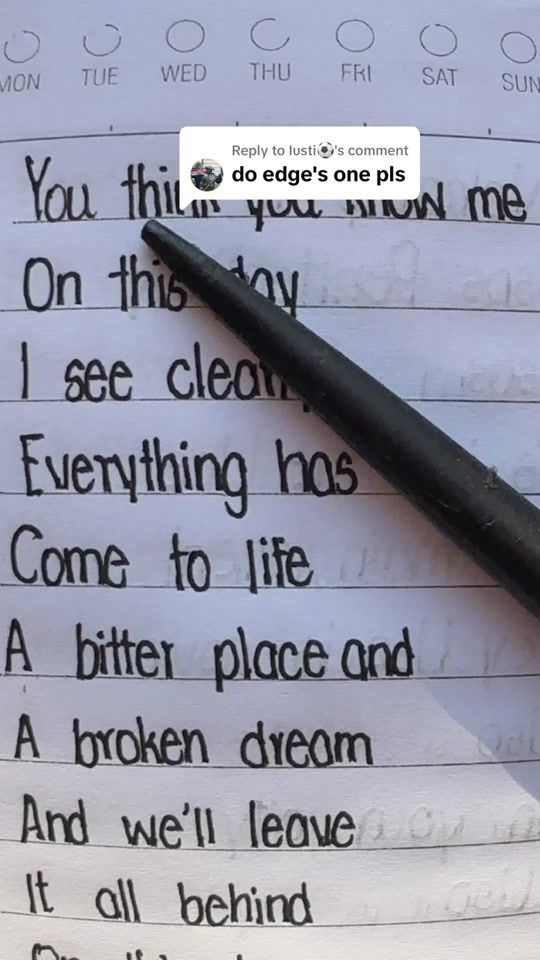 MON TUE WED THU FRI SAT SUN
Reply to lusti⚽'s comment
do edge's one pls
You think you know me
On this day
I see clearly
Everything has
Come to life
A bitter place and
A broken dream
And we'll leave
It all behind